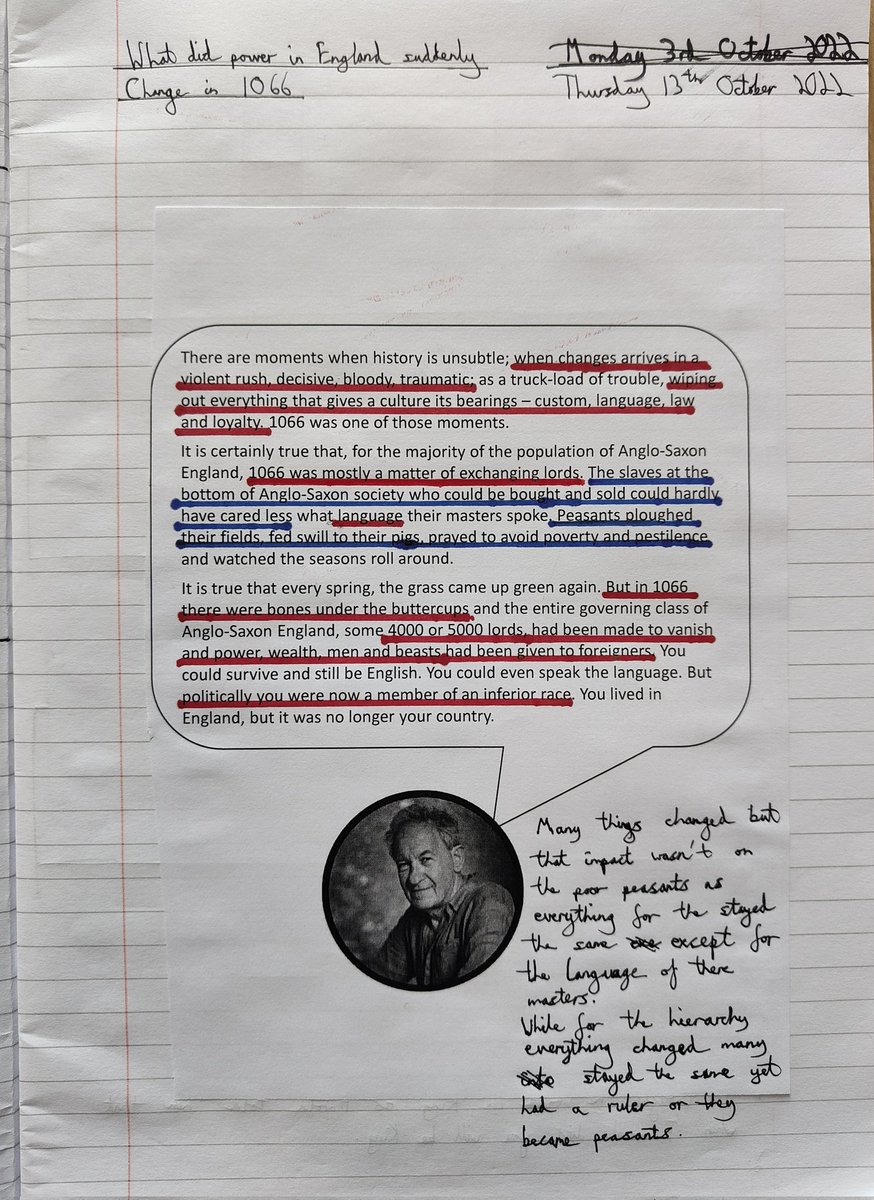 What did power in England suddenly
Change in 1066
Monday 3rd October 2022
Thursday 13th October 2022
There are moments when history is unsubtle; when changes arrives in a
violent rush, decisive, bloody, traumatic; as a truck-load of trouble, wiping
out everything that gives a culture its bearings – custom, language, law
and loyalty. 1066 was one of those moments.
It is certainly true that, for the majority of the population of Anglo-Saxon
England, 1066 was mostly a matter of exchanging lords. The slaves at the
bottom of Anglo-Saxon society who could be bought and sold could hardly
have cared less what language their masters spoke. Peasants ploughed
their fields, fed swill to their pigs, prayed to avoid poverty and pestilence
and watched the seasons roll around.
It is true that every spring, the grass came up green again. But in 1066
there were bones under the buttercups and the entire governing class of
Anglo-Saxon England, some 4000 or 5000 lords, had been made to vanish
and power, wealth, men and beasts had been given to foreigners. You
could survive and still be English. You could even speak the language. But
politically you were now a member of an inferior race. You lived in
England, but it was no longer your country.
Many things changed but
that impact wasn't on
the poor peasants as
everything for the stayed
the same except for
the language of there
masters.
While for the hierarchy
everything changed many
stayed the same yet
had a ruler or they
became peasants.